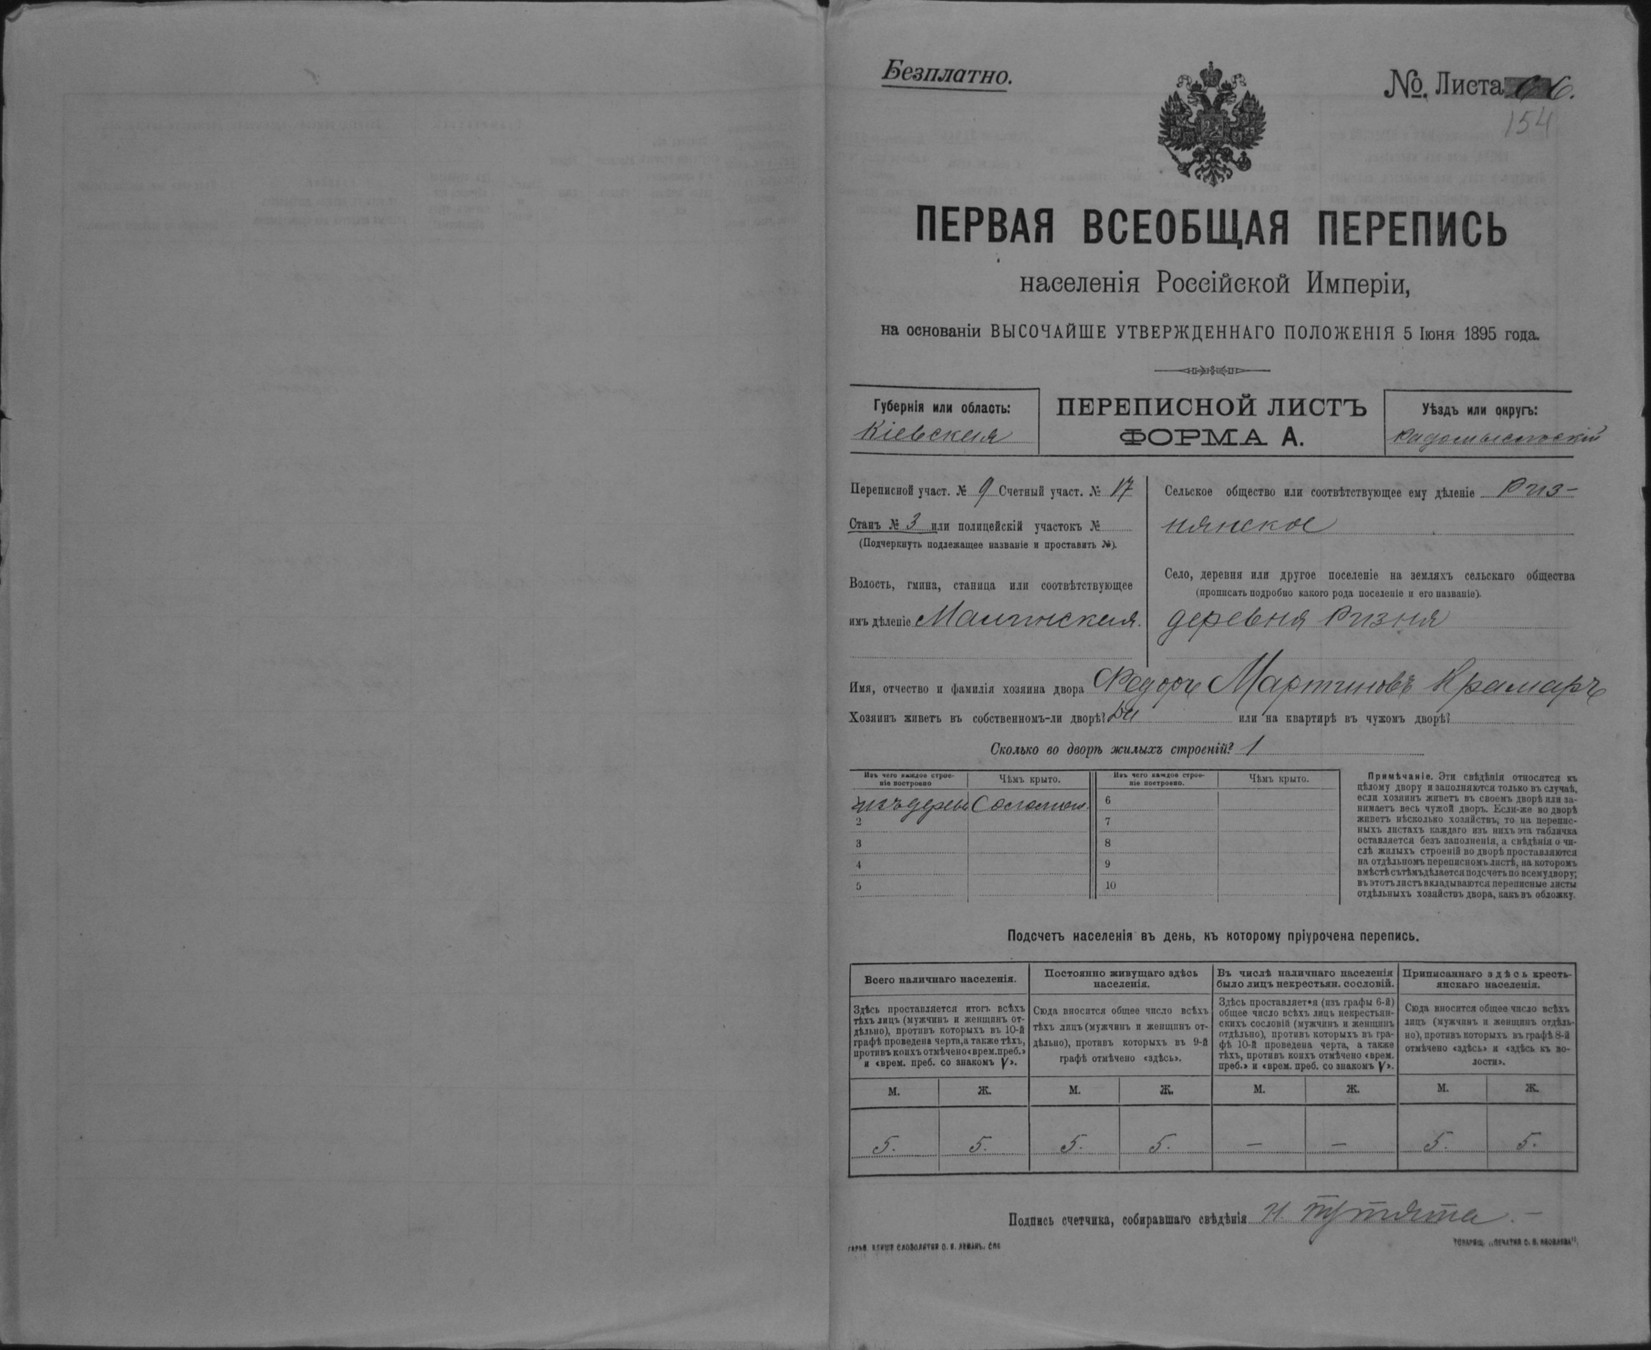 Безплатно.
№ Листа 66.
154
ПЕРВАЯ ВСЕОБЩАЯ ПЕРЕПИСЬ
населенія Россійской Имперіи,
на основаніи ВЫСОЧАЙШЕ УТВЕРЖДЕННАГО ПОЛОЖЕНІЯ 5 Іюня 1895 года.
Губернія или область:
Кіевская
ПЕРЕПИСНОЙ ЛИСТЪ
ФОРМА А.
Уѣздъ или округъ:
Радомысльскій
Переписной участ. № 9 Счетный участ. № 17
Станъ № 3 или полицейскій участокъ №
(Подчеркнуть подлежащее названіе и проставить №).
Волость, гмина, станица или соотвѣтствующее
имъ дѣленіе Малинская.
Сельское общество или соотвѣтствующее ему дѣленіе Риз-
нянское
Село, деревня или другое поселеніе на земляхъ сельскаго общества
(прописать подробно какого рода поселеніе и его названіе).
деревня Ризня
Имя, отчество и фамилія хозяина двора Федоръ Мартиновъ Крамаръ
Хозяинъ живетъ въ собственномъ-ли дворѣ? Да или на квартирѣ въ чужомъ дворѣ?
Сколько во дворѣ жилыхъ строеній? 1
Изъ чего каждое строе-
ніе построено
Чѣмъ крыто.
Изъ чего каждое строе-
ніе построено.
Чѣмъ крыто.
изъ дерев Соломой 6
2 7
3 8
4 9
5 10
Примѣчаніе. Эти свѣдѣнія относятся къ
цѣлому двору и заполняются только въ случаѣ,
если хозяинъ живетъ въ своемъ дворѣ или за-
нимаетъ весь чужой дворъ. Если-же во дворѣ
живетъ нѣсколько хозяйствъ, то на перепис-
ныхъ листахъ каждаго изъ нихъ эта табличка
оставляется безъ заполненія, а свѣдѣнія о чи-
слѣ жилыхъ строеній во дворѣ проставляются
на отдѣльномъ переписномъ листѣ, на которомъ
вмѣстѣ съ тѣмъ дѣлается подсчетъ по всему двору;
въ этотъ листъ вкладываются переписные листы
отдѣльныхъ хозяйствъ двора, какъ въ обложку.
Подсчетъ населенія въ день, къ которому пріурочена перепись.
Всего наличнаго населенія.
Здѣсь проставляется итогъ всѣхъ
тѣхъ лицъ (мужчинъ и женщинъ от-
дѣльно), противъ которыхъ въ 10-й
графѣ проведена черта, а также тѣхъ,
противъ коихъ отмѣчено «врем. преб.»
и «врем. преб. со знакомъ V».
Постоянно живущаго здѣсь
населенія.
Сюда вносится общее число всѣхъ
тѣхъ лицъ (мужчинъ и женщинъ от-
дѣльно), противъ которыхъ въ 9-й
графѣ отмѣчено «здѣсь».
Въ числѣ наличнаго населенія
было лицъ некрестьян. сословій.
Здѣсь проставляется (изъ графы 6-й)
общее число всѣхъ лицъ некрестьян-
скихъ сословій (мужчинъ и женщинъ
отдѣльно), противъ которыхъ въ гра-
фѣ 10-й проведена черта, а также
тѣхъ, противъ коихъ отмѣчено «врем.
преб.» и «врем. преб. со знакомъ V».
Приписаннаго здѣсь кресть-
янскаго населенія.
Сюда вносится общее число всѣхъ
лицъ (мужчинъ и женщинъ отдѣль-
но), противъ которыхъ въ графѣ 8-й
отмѣчено «здѣсь» и «здѣсь къ во-
лости».
М. Ж. М. Ж. М. Ж. М. Ж.
5. 5. 5. 5. — — 5. 5.
Подпись счетчика, собиравшаго свѣдѣнія И. Путята.